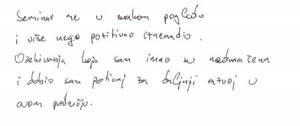 Seminar me u svakom pogledu
i više nego pozitivno iznenadio.
Očekivanja koja sam imao su nadmašena
i dobio sam poticaj za daljnji razvoj u
ovom području.